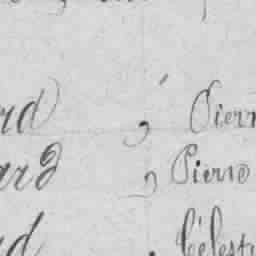 rd , Pierr
ard , Pierre
rd , Célest